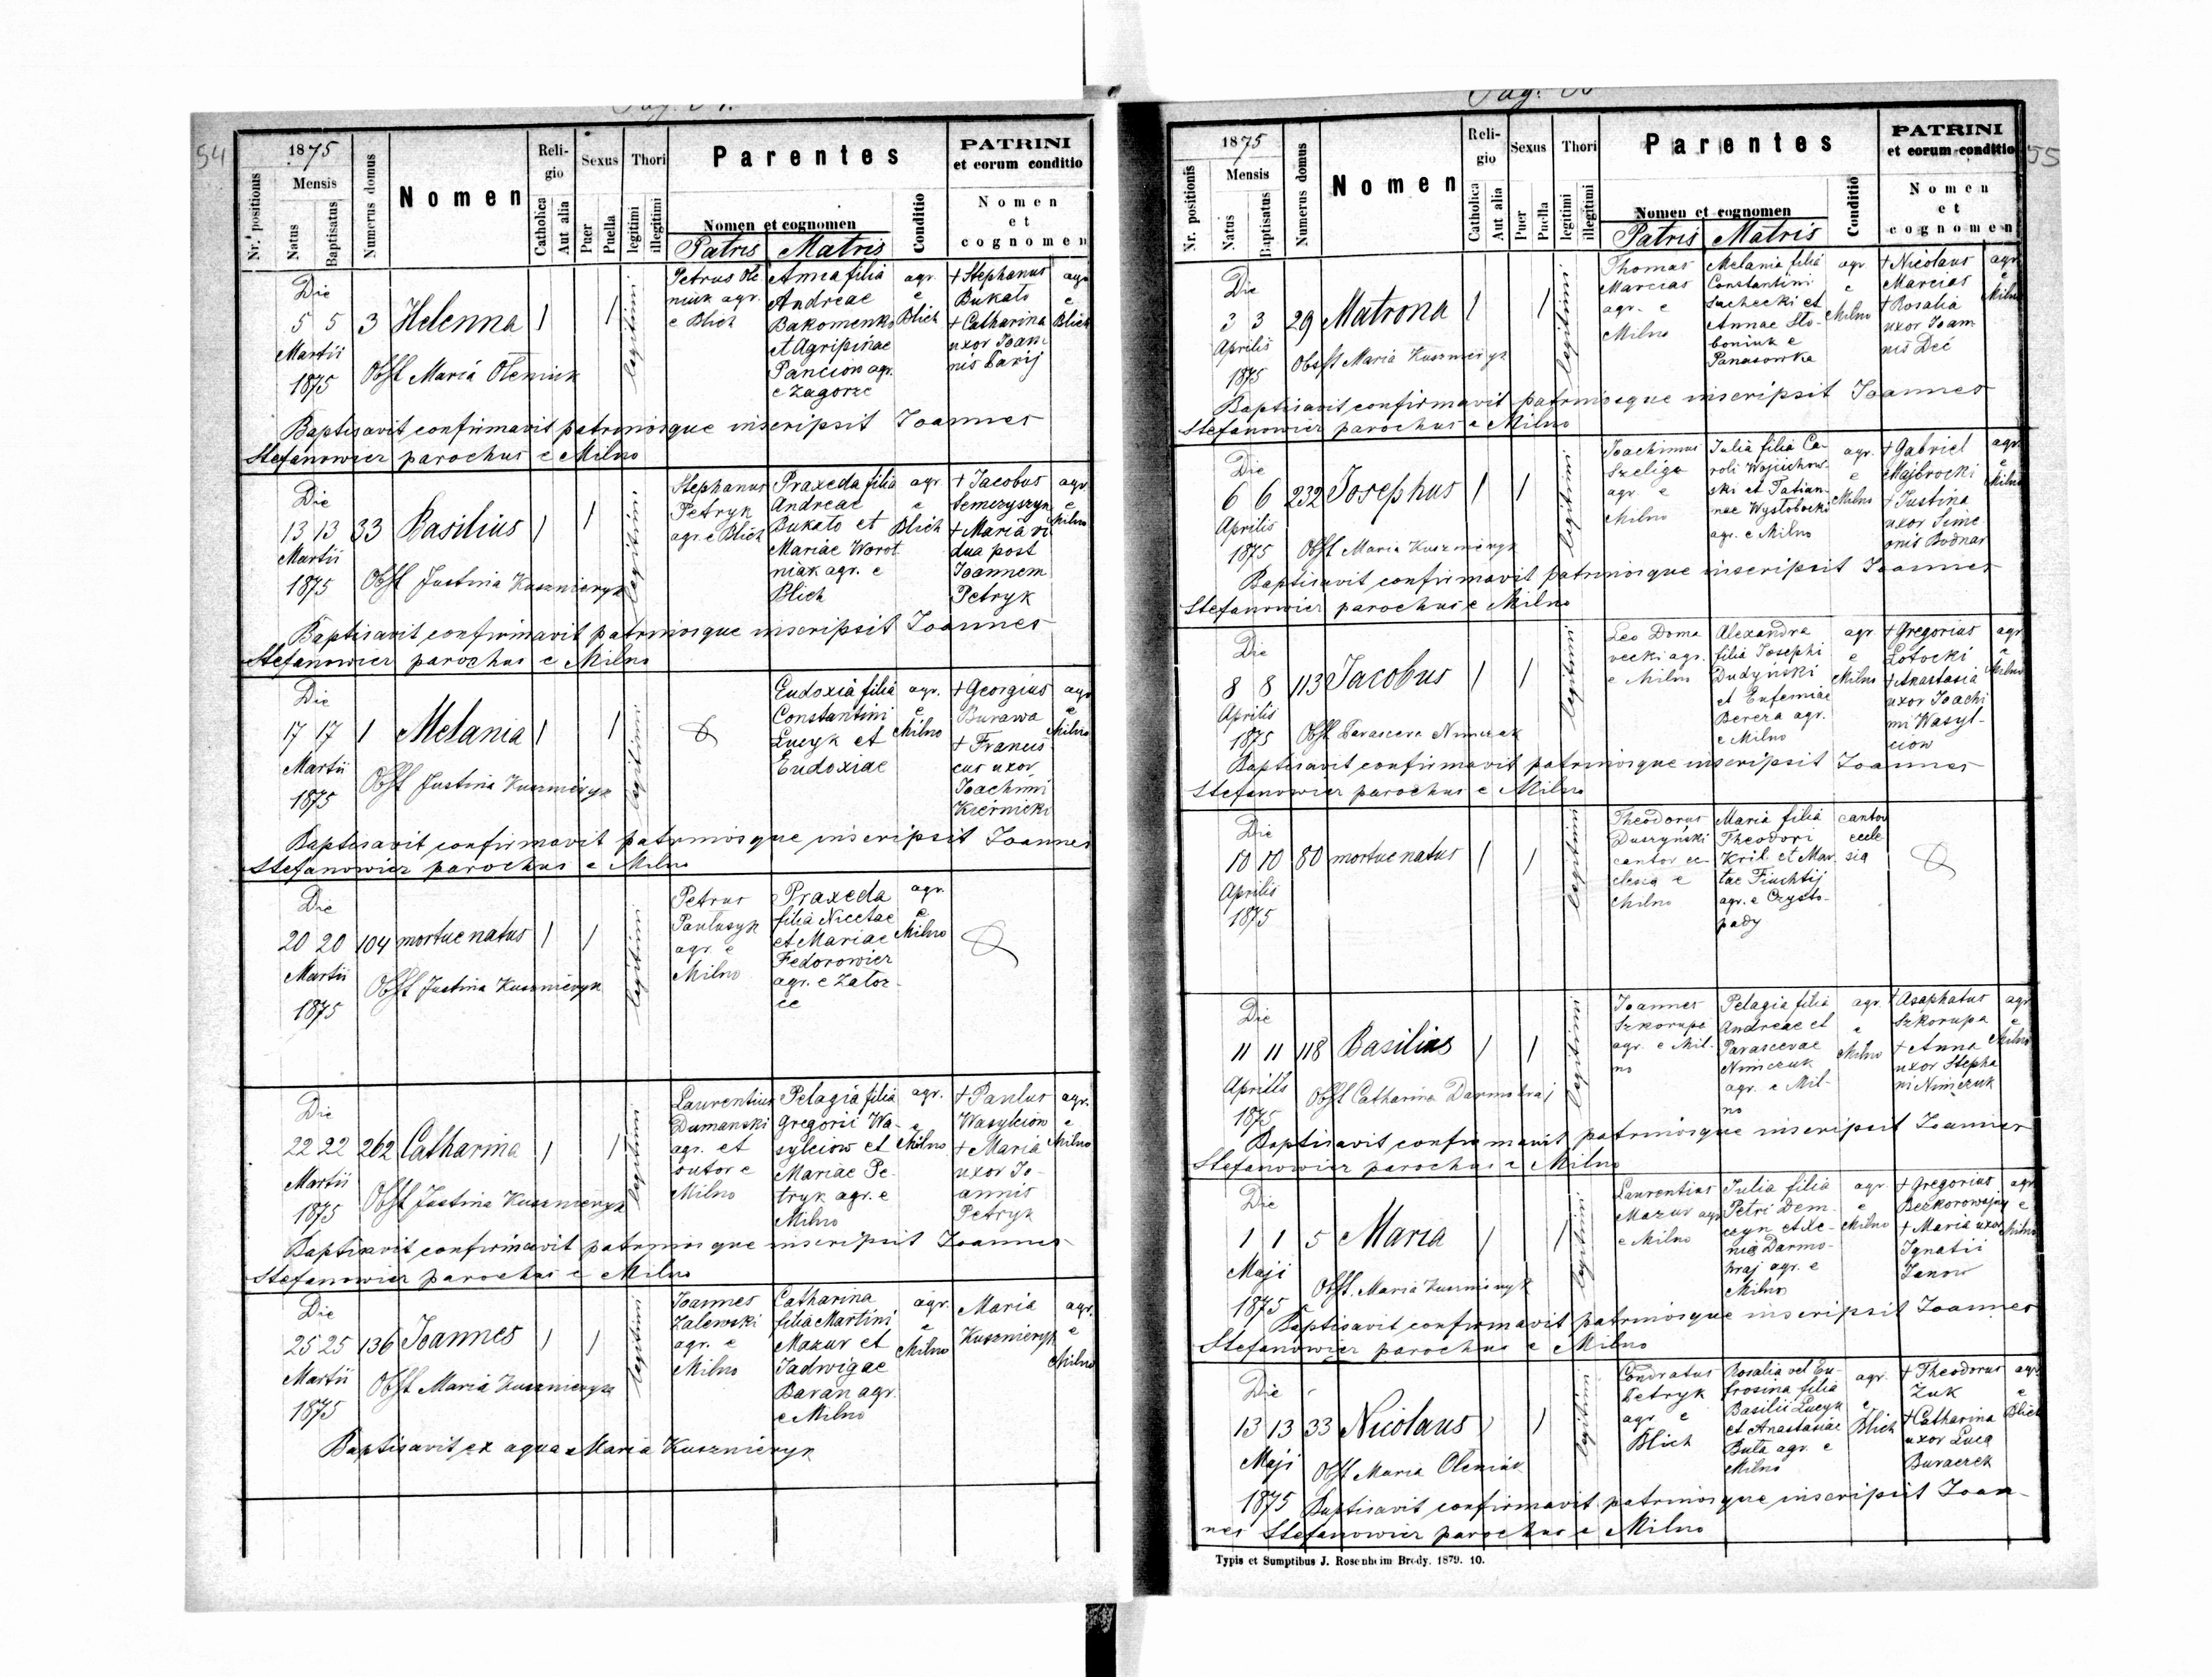 54
1875
Nr. positionis
Mensis
Natus
Baptisatus
Numerus domus
Nomen
Religio
Catholica
Aut alia
Sexus
Puer
Puella
Thori
legitimi
illegitimi
Parentes
Nomen et cognomen
Patris Matris
Conditio
PATRINI
et eorum conditio
Nomen
et
cognomen
Die
5 5 3 Helenna / / legitimi
Martii
1875
Obst Maria Oleniuk
Petrus Ole
niuk agr.
e Blich
Anna filia
Andreae
Bakomenko
et Agripinae
Panciow agr.
e Zagorze
agr.
e
Blich
+ Stephanus
Bukato
+ Catharina
uxor Ioan
nis Tarij
agr
e
Blich
Baptisavit confirmavit patrinosque inscripsit Ioannes
Stefanowicz parochus e Milno
Die
13 13 33 Basilius / / legitimi
Martii
1875
Obst Justina Kusznieryk
Stephanus
Petryk
agr. e Blich
Praxeda filia
Andreae
Bukato et
Mariae Worot
niak agr. e
Blich
agr
e
Blich
+ Jacobus
Semczyszyn
+ Maria vi
dua post
Ioannem
Petryk
agr
e
Milno
Baptisavit confirmavit patrinosque inscripsit Ioannes
Stefanowicz parochus e Milno
Die
17 17 1 Melania / / legitimi
Martii
1875
Obst Justina Kusznieryk
Eudoxia filia
Constantini
Lucyk et
Eudoxiae
agr.
e
Milno
+ Georgius
Burawa
+ Francis
cus uxor
Joachimi
Kiernicki
agr
e
Milno
Baptisavit confirmavit patrinosque inscripsit Ioannes
Stefanowicz parochus e Milno
Die
20 20 104 mortue natus / / legitimi
Martii
1875
Obst Justina Kusznieryk
Petrus
Paulusyk
agr. e
Milno
Praxeda
filia Nicetae
et Mariae
Fedorowicz
agr. e Zator
ce
agr
e
Milno
Die
22 22 262 Catharina / / legitimi
Martii
1875
Obst Justina Kusznieryk
Laurentius
Dumanski
agr. et
sutor e
Milno
Pelagia filia
Gregorii Wa-
sylciow et
Mariae Pe-
tryk agr. e
Milno
agr.
e
Milno
+ Paulus
Wasylciow
+ Maria
uxor Jo-
annis
Petryk
agr.
e
Milno
Baptisavit confirmavit patrinosque inscripsit Ioannes
Stefanowicz parochus e Milno
Die
25 25 136 Ioannes / / legitimi
Martii
1875
Obst Maria Kusznieryk
Ioannes
Zalewski
agr. e
Milno
Catharina
filia Martini
Mazur et
Jadwigae
Baran agr.
e Milno
agr.
e
Milno
Maria
Kusznieryk
agr.
e
Milno
Baptisavit ex aqua Maria Kusznieryk
55
1875
Nr. positionis
Mensis
Natus
Baptisatus
Numerus domus
Nomen
Religio
Catholica
Aut alia
Sexus
Puer
Puella
Thori
legitimi
illegitimi
Parentes
Nomen et cognomen
Patris Matris
Conditio
PATRINI
et eorum conditio
Nomen
et
cognomen
Die
3 3 29 Matrona / / legitimi
Aprilis
1875
Obst Maria Kusznieryk
Thomas
Marcias
agr. e
Milno
Melania filia
Constantini
Sachecki et
Annae Sto-
boniuk e
Panasowka
agr
e
Milno
+ Nicolaus
Marcias
+ Rosalia
uxor Ioan
nis Deć
agr
e
Milno
Baptisavit confirmavit patrinosque inscripsit Ioannes
Stefanowicz parochus e Milno
Die
6 6 232 Josephus / / legitimi
Aprilis
1875
Obst Maria Kusznieryk
Joachimus
Szeliga
agr. e
Milno
Julia filia Ca-
roli Wojciechow-
ski et Tatian-
nae Wyslobocki
agr. e Milno
agr.
e
Milno
+ Gabriel
Majbrocki
+ Justina
uxor Sime
onis Bodnar
agr.
e
Milno
Baptisavit confirmavit patrinosque inscripsit Ioannes
Stefanowicz parochus e Milno
Die
8 8 113 Jacobus / / legitimi
Aprilis
1875
Obst Parasceva Nimczuk
Leo Doma
recki agr.
e Milno
Alexandra
filia Josephi
Dudyński
et Eufemiae
Bereza agr.
e Milno
agr
e
Milno
+ Gregorius
Lotocki
+ Anastasia
uxor Joachi
mi Wasyl-
ciow
agr
e
Milno
Baptisavit confirmavit patrinosque inscripsit Ioannes
Stefanowicz parochus e Milno
Die
10 10 80 mortue natus / / legitimi
Aprilis
1875
Theodorus
Duszyński
cantor ec-
clesia e
Milno
Maria filia
Theodori
Kril et Mar
tae Fiuchtij
agr. e Czysto-
pady
cantor
eccle
sia
Die
11 11 118 Basilius / / legitimi
Aprilis
1875
Obst Catharina Darmohraj
Joannes
Szkorupa
agr. e Mil-
no
Pelagia filia
Andreae et
Parascevae
Nimczuk
agr. e Mil-
no
agr.
e
Milno
+ Asaphatus
Szkorupa
+ Anna
uxor Stepha
ni Nimczuk
agr
e
Milno
Baptisavit confirmavit patrinosque inscripsit Ioannes
Stefanowicz parochus e Milno
Die
1 1 5 Maria / / legitimi
Maji
1875
Obst. Maria Kusznieryk
Laurentius
Mazur agr
e Milno
Julia filia
Petri Dem-
czyn et Xe-
nia Darmo-
hraj agr. e
Milno
agr.
e
Milno
+ Gregorius
Bezkorowajny
+ Maria uxor
Ignatii
Janow
agr
e
Milno
Baptisavit confirmavit patrinosque inscripsit Ioannes
Stefanowicz parochus e Milno
Die
13 13 33 Nicolaus / / legitimi
Maji
1875
Obst Maria Oleniuk
Condratus
Petryk
agr e
Blich
Rosalia vel Eu-
frosina filia
Basilii Lucyk
et Anastasiae
Buta agr. e
Milno
agr.
e
Blich
+ Theodorus
Żuk
+ Catharina
uxor Luca
Buraczek
agr
e
Blich
Baptisavit confirmavit patrinosque inscripsit Ioan-
nes Stefanowicz parochus e Milno
Typis et Sumptibus J. Rosenheim Brody. 1879. 10.